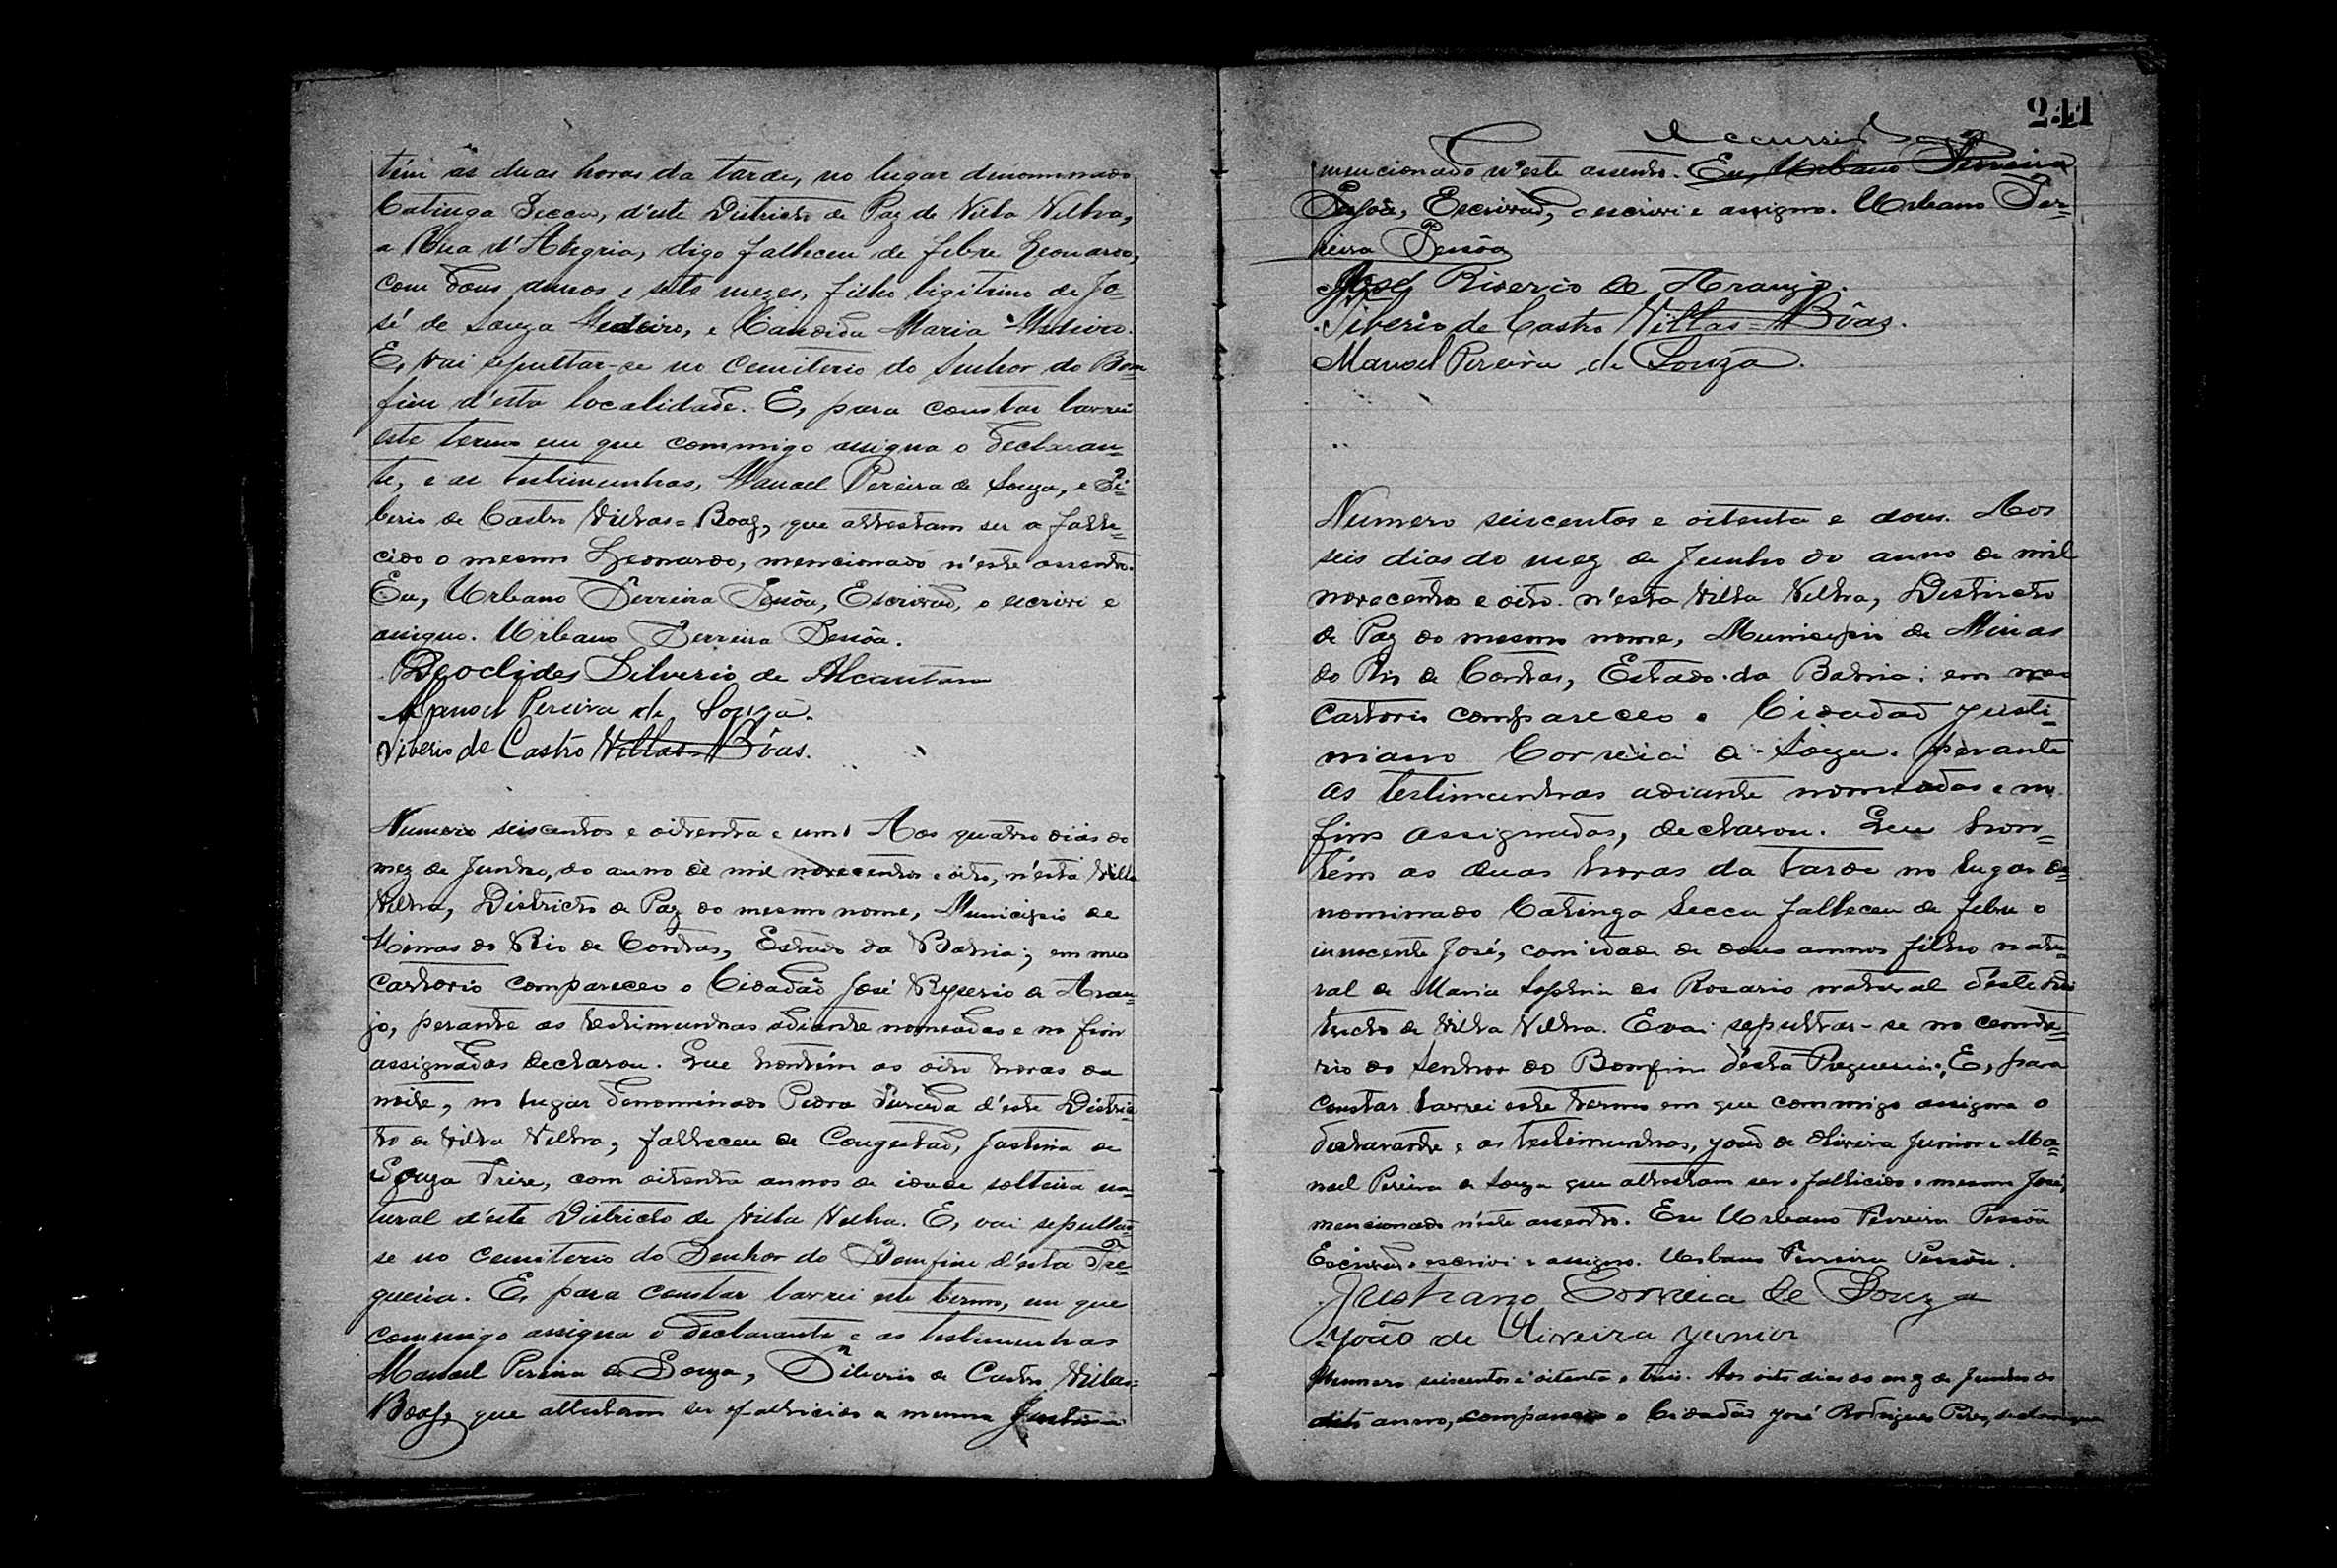 tém ás duas horas da tarde, no lugar dinominado
Catinga Secca, d'este Districto de Paz de Villa Velha,
a Rua d'Alegria, digo falleceu de febre Leonardo,
com dous annos e sete mezes, filho ligitimo de Jo-
sé de Souza Medeiro, e Candida Maria Medeiro.
E, vai sepultar-se no Cemiterio do Senhor do Bom
fim d'esta localidade. E, para constar lavrei
este termo em que commigo assigna o declaran-
te, e as testimunhas, Manoel Pereira de Souza, e Ti-
berio de Castro Villas=Boas, que attestam ser o falle-
cido o mesmo Leonardo, mencionado n'este assento.
Eu, Urbano Ferreira Pessôa, Escrivaõ, o escrivi e
assigno. Urbano Ferreira Pessôa.
Deoclides Silverio de Alcantara
Manoel Pereira de Souza.
Tiberio de Castro Villas-Bôas.
Numero seiscentos e oitenta e um. Aos quatro dias do
mez de Junho, do anno de mil novecentos e oito, n'esta Villa
Velha, Districto de Paz do mesmo nome, Municipio de
Minas do Rio de Contas, Estado da Bahia; em meu
Cartorio compareceo o Cidadaõ José Ryserio de Arau-
jo, perante as testimunhas adiante nomeadas e no fim
assignadas declarou. Que hontém as oito horas da
noite, no lugar denominado Pedra Furada d'este Distric-
to de Villa Velha, falleceu de Congestaõ, Justina de
Souza Freire, com oitenta annos de idade solteira na-
tural d'este Districto de Villa Velha. E, vai sepultar-
se no cemiterio do Senhor do Bomfim d'esta Fre-
guezia. E, para constar lavrei este termo, em que
commigo assigna o declarante e as testimunhas
Manoel Pereira de Souza, Tiberio de Castro Villas=
Boas, que attestam ser o fallicido a mesma Justina
241
mencionado n'este assento. Eu, Urbano Ferreira
Pessôa, Escrivaõ, o escrivi e assigno. Urbano Fer-
reira Pessôa
José Riserio de Araujo.
Tiberio de Castro Villas=Bôas.
Manoel Pereira de Souza.
Numero seiscentos e oitenta e dous. Aos
seis dias do mez de Junho do anno de mil
novecentos e oito. n'esta Villa Velha, Districto
de Paz do mesmo nome, Municipio de Minas
do Rio de Contas, Estado da Bahia: em meu
Cartorio compareceo o Cidadaõ Justi-
niano Correia de Souza. perante
as testimunhas adiante nomeadas e no
fim assignadas, declarou. Que hon-
tém as duas horas da tarde no lugar de-
nominado Catinga Secca falleceu de febre o
innocente José, com idade de dous annos filho natu-
ral de Maria Sophia do Rosario natural d'este Dis
tricto de Villa Velha. E vai sepultar-se no cemite-
rio do Senhor do Bomfim d'esta Freguesia. E, para
constar lavrei este termo em que commigo assigna o
declarante e as testimunhas, João de Oliveira Junior e Ma-
noel Pereira de Souza que attestam ser o fallicido o mesmo José,
mencionado n'este assento. Eu Urbano Ferreira Pessôa
Escrivaõ o escrivi e assigno. Urbano Ferreira Pessôa.
Justiano Correia de Souza
João de Oliveira Junior
Numero seiscentos e oitenta e tres. Aos oito dias do mez de Junho do
dito anno, compareceo o Cidadão José Rodrigues Pires,